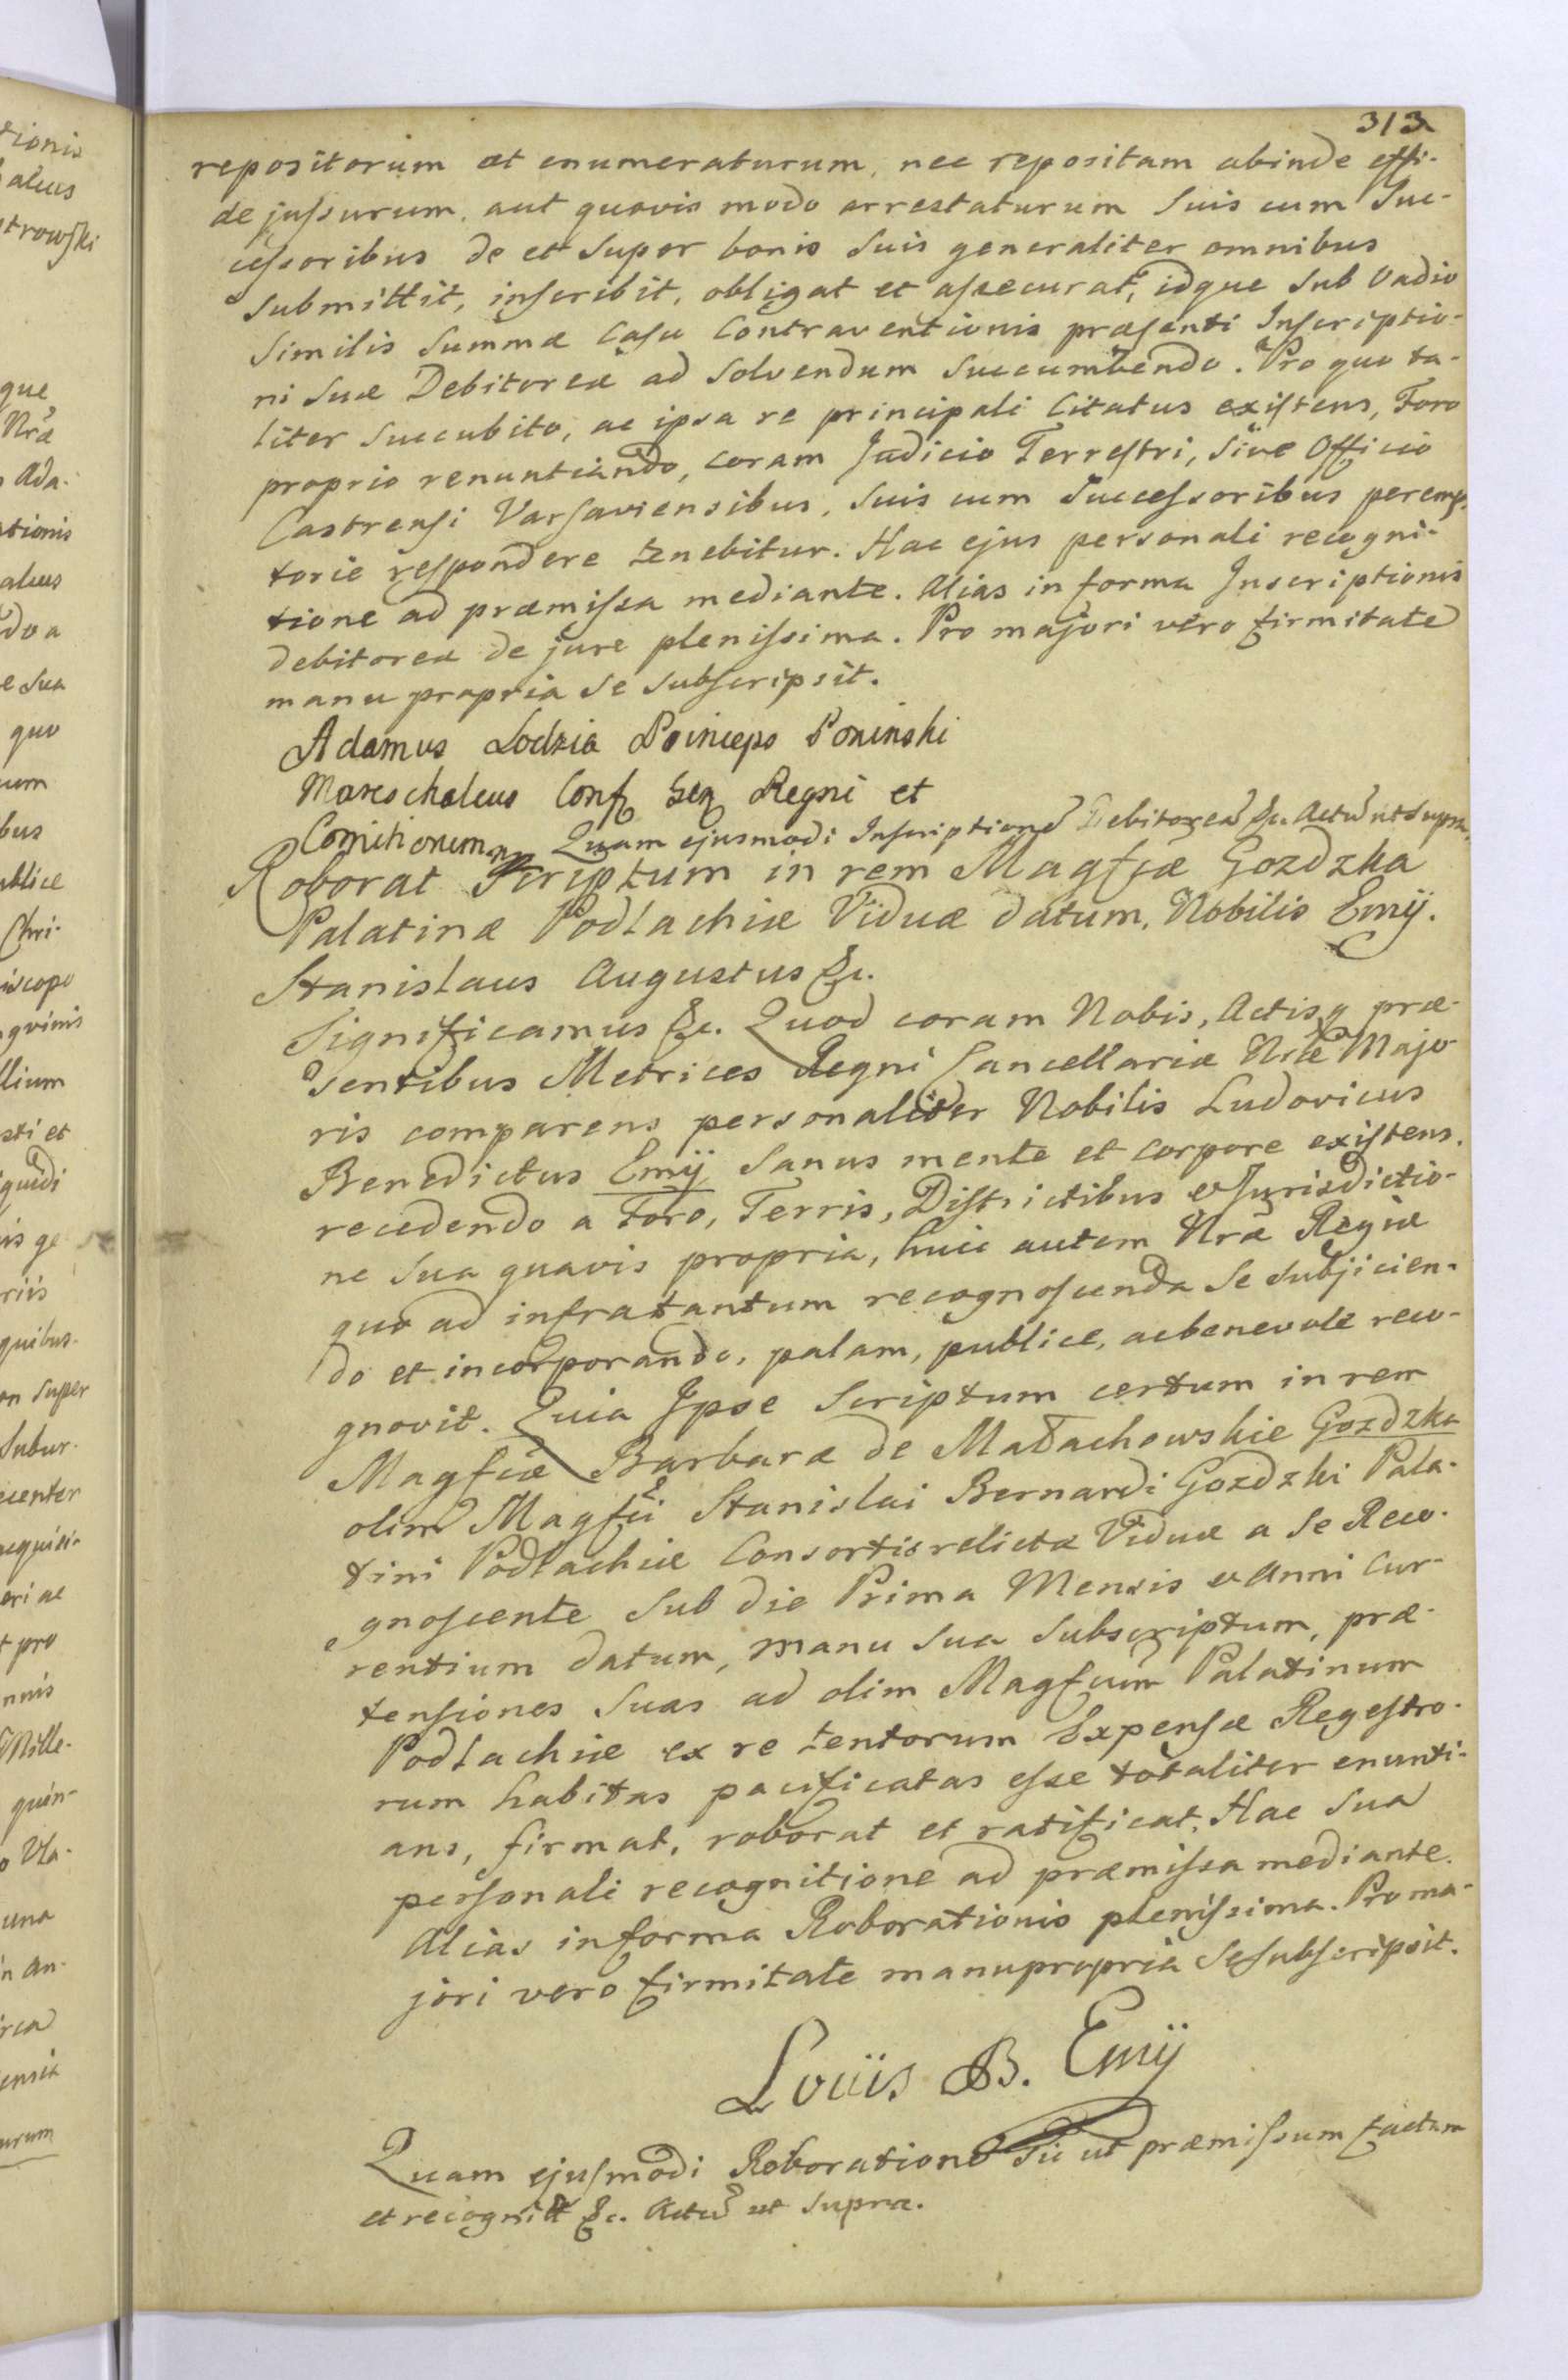 313
repositorum et enumeraturum, nec repositam abinde effi-
de jussurum, aut quovis modo arrestaturum suis cum Suc-
cessoribus de et super bonis suis generaliter omnibus
submittit, inscribit, obligat et assecurat, idque sub vadio
similis summæ casu contraventionis præsenti Inscriptio-
ni suæ Debitoreæ ad solvendum succumbendo. Pro quo ta-
liter succubito, ac ipsa re principali citatus existens, Foro
proprio renuntiando, coram Judicio Terrestri, sive Officio
Castrensi Varsaviensibus, suis cum Successoribus peremp-
torie respondere tenebitur. Hac ejus personali recogni-
tione ad præmissa mediante. Alias in forma Inscriptionis
debitorea de jure plenissima. Pro majori vero firmitate
manu propria se subscripsit.
Adamus Lodzia Princeps Poninski
Mareschalcus Conf Gen Regni et
Comitiorum mp Quam ejusmodi Inscriptione Debitorea &c. Actu ut supra.
Roborat Scriptum in rem Magfcæ Gozdzka
Palatinæ Podlachiæ Viduæ datum, Nobilis Emÿ.
Stanislaus Augustus &c.
Significamus &c. Quod coram Nobis, Actisq præ-
sentibus Metrices Regni Cancellariæ Nræ Majo-
ris comparens personaliter Nobilis Ludovicus
Benedictus Emÿ sanus mente et corpore existens,
recedendo a Foro, Terris, Districtibus et Jurisdictio-
ne sua quavis propria, huic autem Nræ Regiæ
quo ad infra tantum recognoscenda se subjicien-
do et incorporando, palam, publice, ac benevole reco-
gnovit. Quia Ipse Scriptum certum in rem
Magfcæ Barbaræ de Małachowskie Gozdzka
olim Magfci Stanislai Bernardi Gozdzki Pala-
tini Podlachiæ Consortis relictæ Viduæ a se Reco-
gnoscente sub die Prima Mensis et Anni cur-
rentium datum, manu sua subscriptum, præ-
tensiones suas ad olim Magfcum Palatinum
Podlachiæ ex re tentorum Expensæ Regestro-
rum habitas pacificatas esse totaliter enunti-
ans, firmat, roborat et ratificat. Hac sua
personali recognitione ad præmissa mediante.
Alias in forma Roborationis plenissima. Pro ma-
jori vero firmitate manu propria se subscripsit.
Louis B. Emÿ
Quam ejusmodi Roboratione sic ut præmissum factam
et recognitt &c. Actu ut supra.